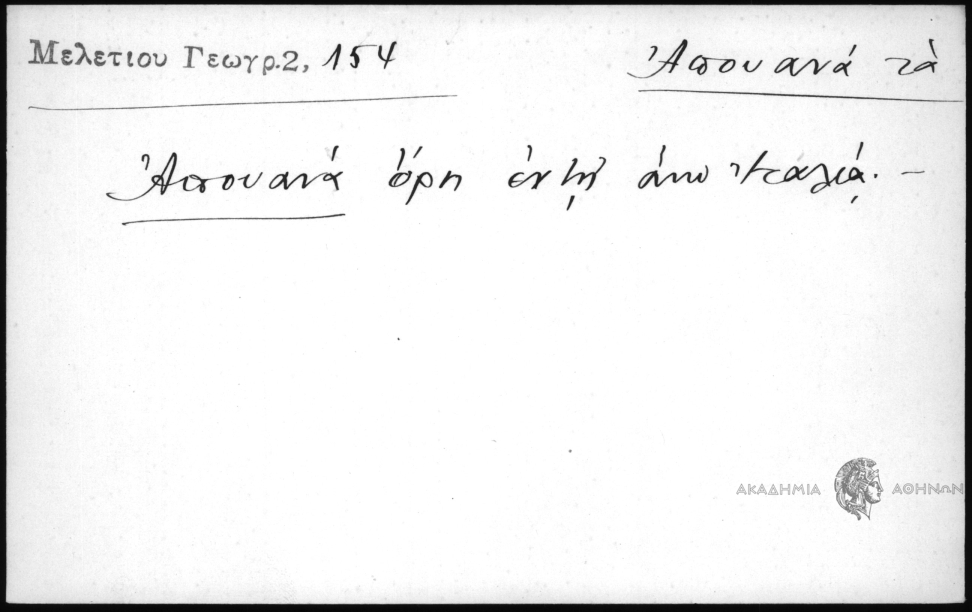 Μελετιου Γεωγρ.2, 154
Ἀπουανά τὰ
Ἀπουανά ὄρη ἐν τῇ ἄνω Ἰταλίᾳ. –
ΑΚΑΔΗΜΙΑ ΑΘΗΝΩΝ